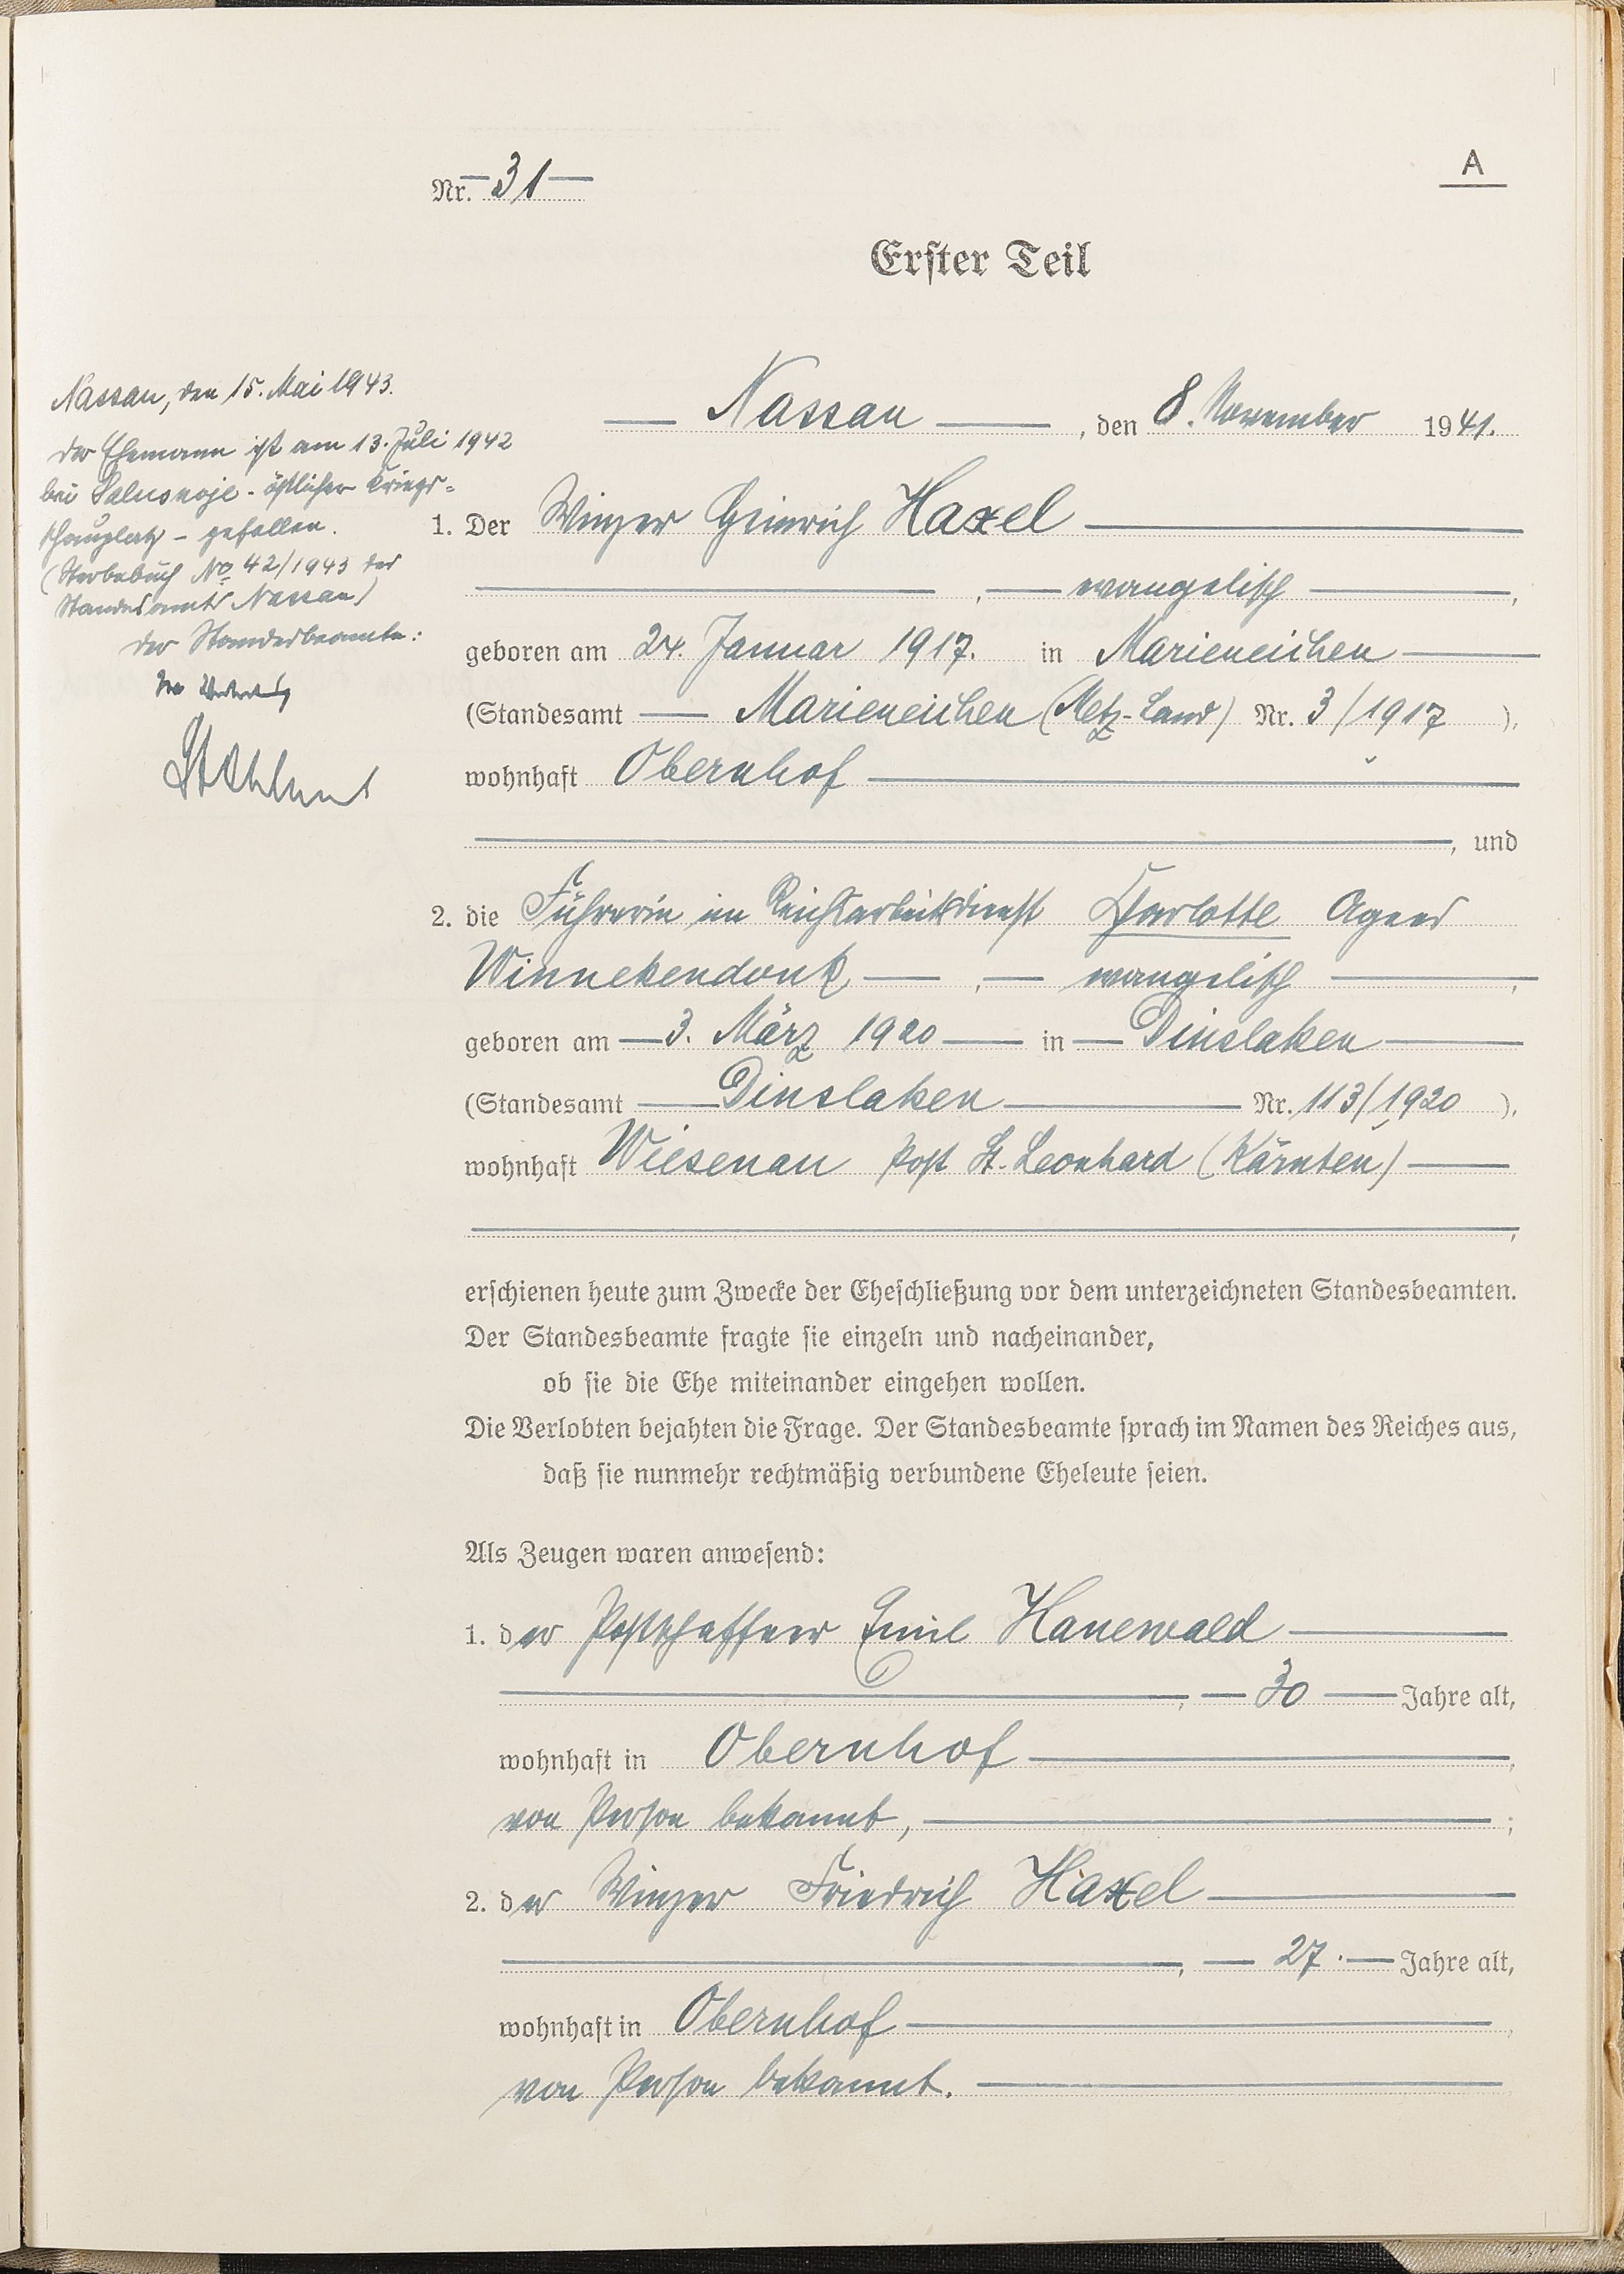 Nr. 31
A
Erster Teil
Nassau, den 15. Mai 1943.
Der Ehemann ist am 13. Juli 1942
bei - östlicher Kriegs-
schauplatz - gefallen.
(Sterbebuch No 42/1943 des
Standesamts Nassau)
Der Standesbeamte:
In Vertretung
Nassau, den 8. November 1941.
1. Der Winzer Heinrich Haxel
, evangelisch,
geboren am 24. Januar 1917. in Marieneichen
(Standesamt Marieneichen (Metz-Land) Nr. 3/1917),
wohnhaft Obernhof
, und
2. die Führerin im Reichsarbeitsdienst Charlotte Agnes
Winnekendonk, evangelisch,
geboren am 3. März 1920 in Dinslaken
(Standesamt Dinslaken Nr. 113/1920),
wohnhaft Wiesenau Post St. Leonhard (Kärnten)
,
erschienen heute zum Zwecke der Eheschließung vor dem unterzeichneten Standesbeamten.
Der Standesbeamte fragte sie einzeln und nacheinander,
ob sie die Ehe miteinander eingehen wollen.
Die Verlobten bejahten die Frage. Der Standesbeamte sprach im Namen des Reiches aus,
daß sie nunmehr rechtmäßig verbundene Eheleute seien.
Als Zeugen waren anwesend:
1. der Postschaffner Emil Hanewald
, 30 Jahre alt,
wohnhaft in Obernhof,
von Person bekannt, ;
2. der Winzer Friedrich Haxel
, 27. Jahre alt,
wohnhaft in Obernhof,
von Person bekannt.